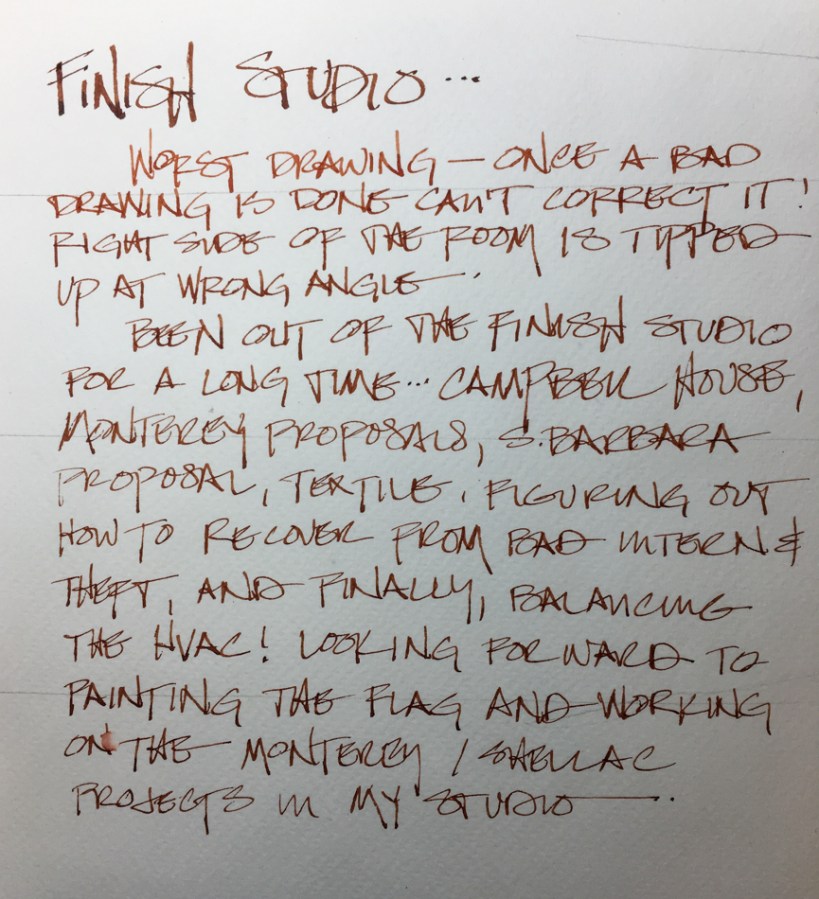 FINISH STUDIO...
WORST DRAWING — ONCE A BAD
DRAWING IS DONE CAN'T CORRECT IT!
RIGHT SIDE OF THE ROOM IS TIPPED
UP AT WRONG ANGLE.
BEEN OUT OF THE FINISH STUDIO
FOR A LONG TIME... CAMPBELL HOUSE,
MONTEREY PROPOSALS, S. BARBARA
PROPOSAL, TEXTILE, FIGURING OUT
HOW TO RECOVER FROM BAD INTERN &
THEFT, AND FINALLY, BALANCING
THE HVAC! LOOKING FORWARD TO
PAINTING THE FLAG AND WORKING
ON THE MONTEREY / SHELLAC
PROJECTS IN MY STUDIO.